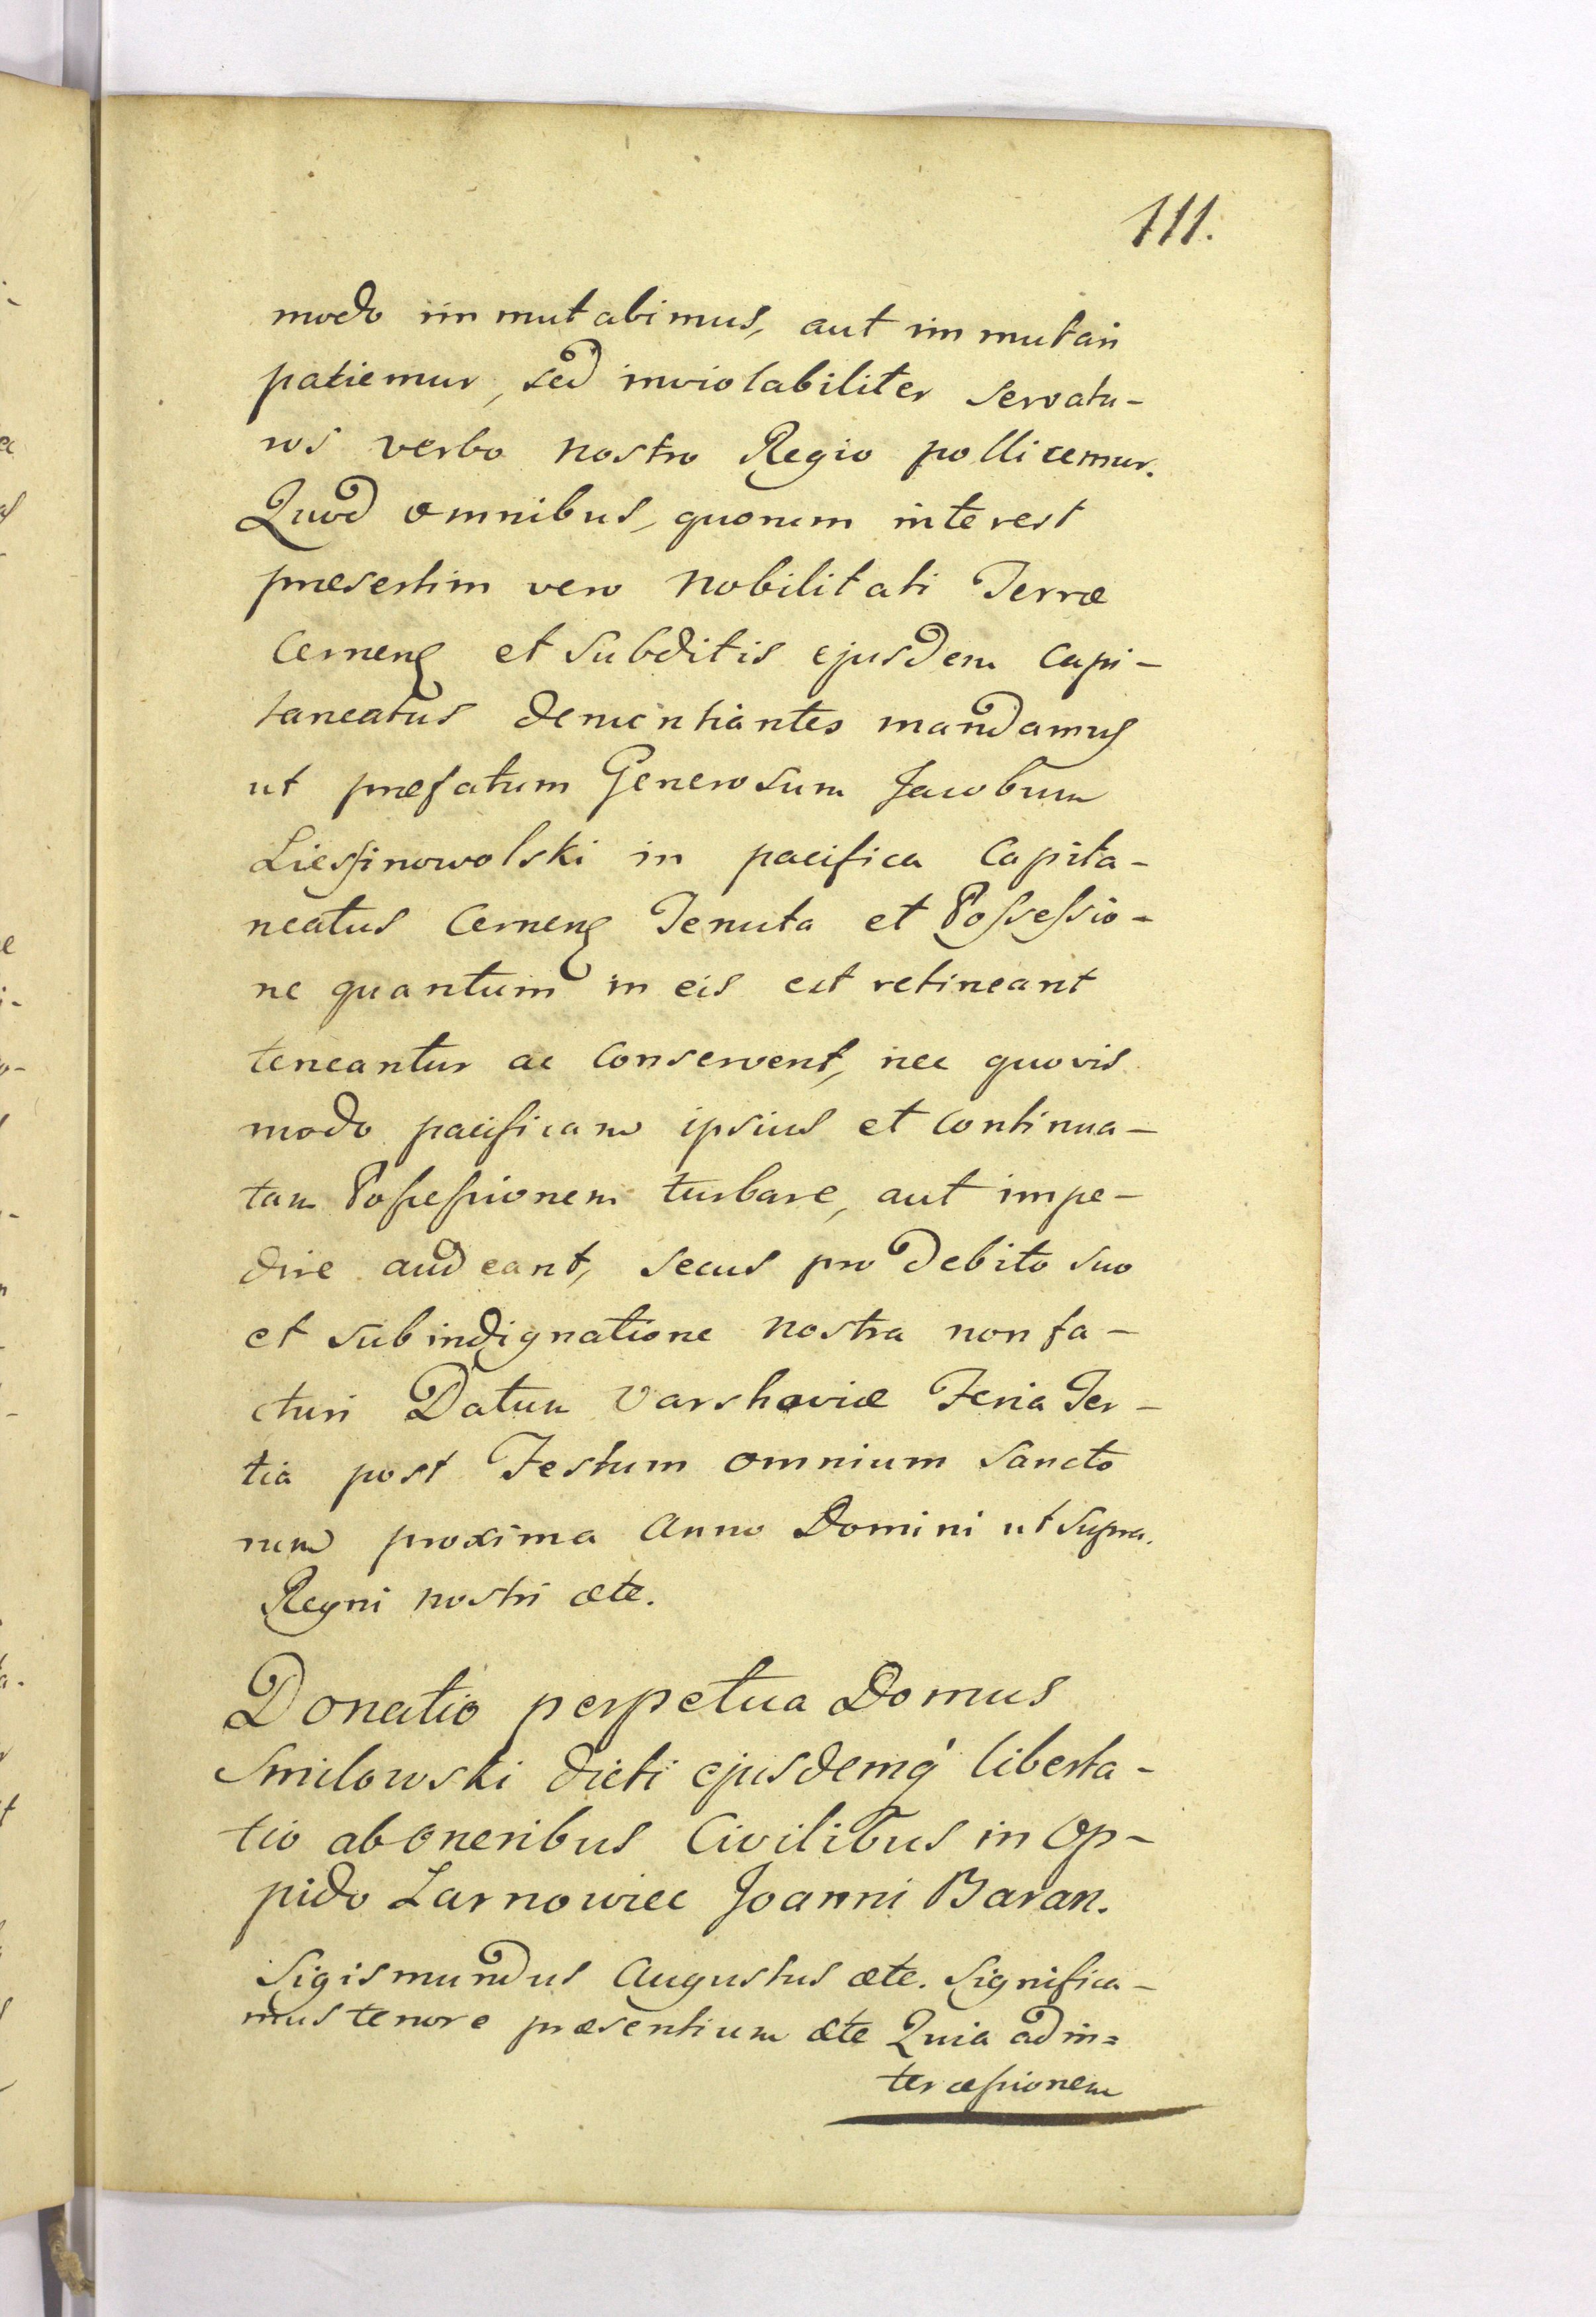 111.
modo immutabimus, aut immutari
patiemur, sed inviolabiliter servatu-
ros verbo nostro Regio pollicemur.
Quod omnibus, quorum interest
præsertim vero Nobilitati Terræ
Cernen et Subditis ejusdem Capi-
taneatus denuntiantes mandamus
ut præfatum Generosum Jacobum
in pacifica Capita-
neatus Cernen Tenuta et Possessio-
ne quantum in eis est retineant
teneantur ac Conservent, nec quovis
modo pacificam ipsius et Continua-
tam Possessionem turbare, aut impe-
dire audeant, secus pro debito suo
et sub indignatione nostra non fa-
cturi Datum Varshaviæ Feria Ter-
tia post Festum omnium Sancto
rum proxima Anno Domini ut supra.
Regni nostri æte.
Donatio perpetua Domus
Smilowski dicti ejusdemq' liberta-
tio ab oneribus Civilibus in Op-
pido Zarnowiec Joanni Baran.
Sigismundus Augustus æte. Significa-
mus tenore præsentium æte Quia ad in=
tercessionem